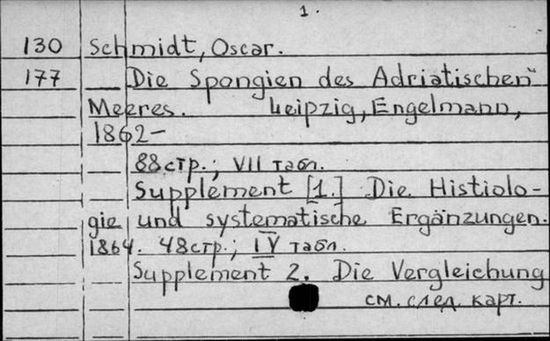 1.
130 Schmidt, Oscar.
177 Die Spongien des Adriatischen
Meeres. Leipzig, Engelmann,
1862-
88 стр.; VII табл.
Supplement [1.] Die Histiolo-
gie und systematische Ergänzungen.
1864. 48 стр.; IV табл.
Supplement 2. Die Vergleichung
см. след. карт.